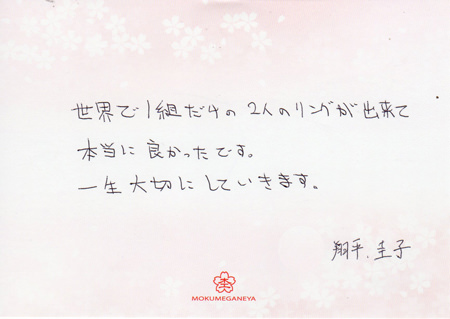 世界で1組だけの2人のリングが出来て
本当に良かったです。
一生大切にしていきます。
翔平、圭子
杢
MOKUMEGANEYA